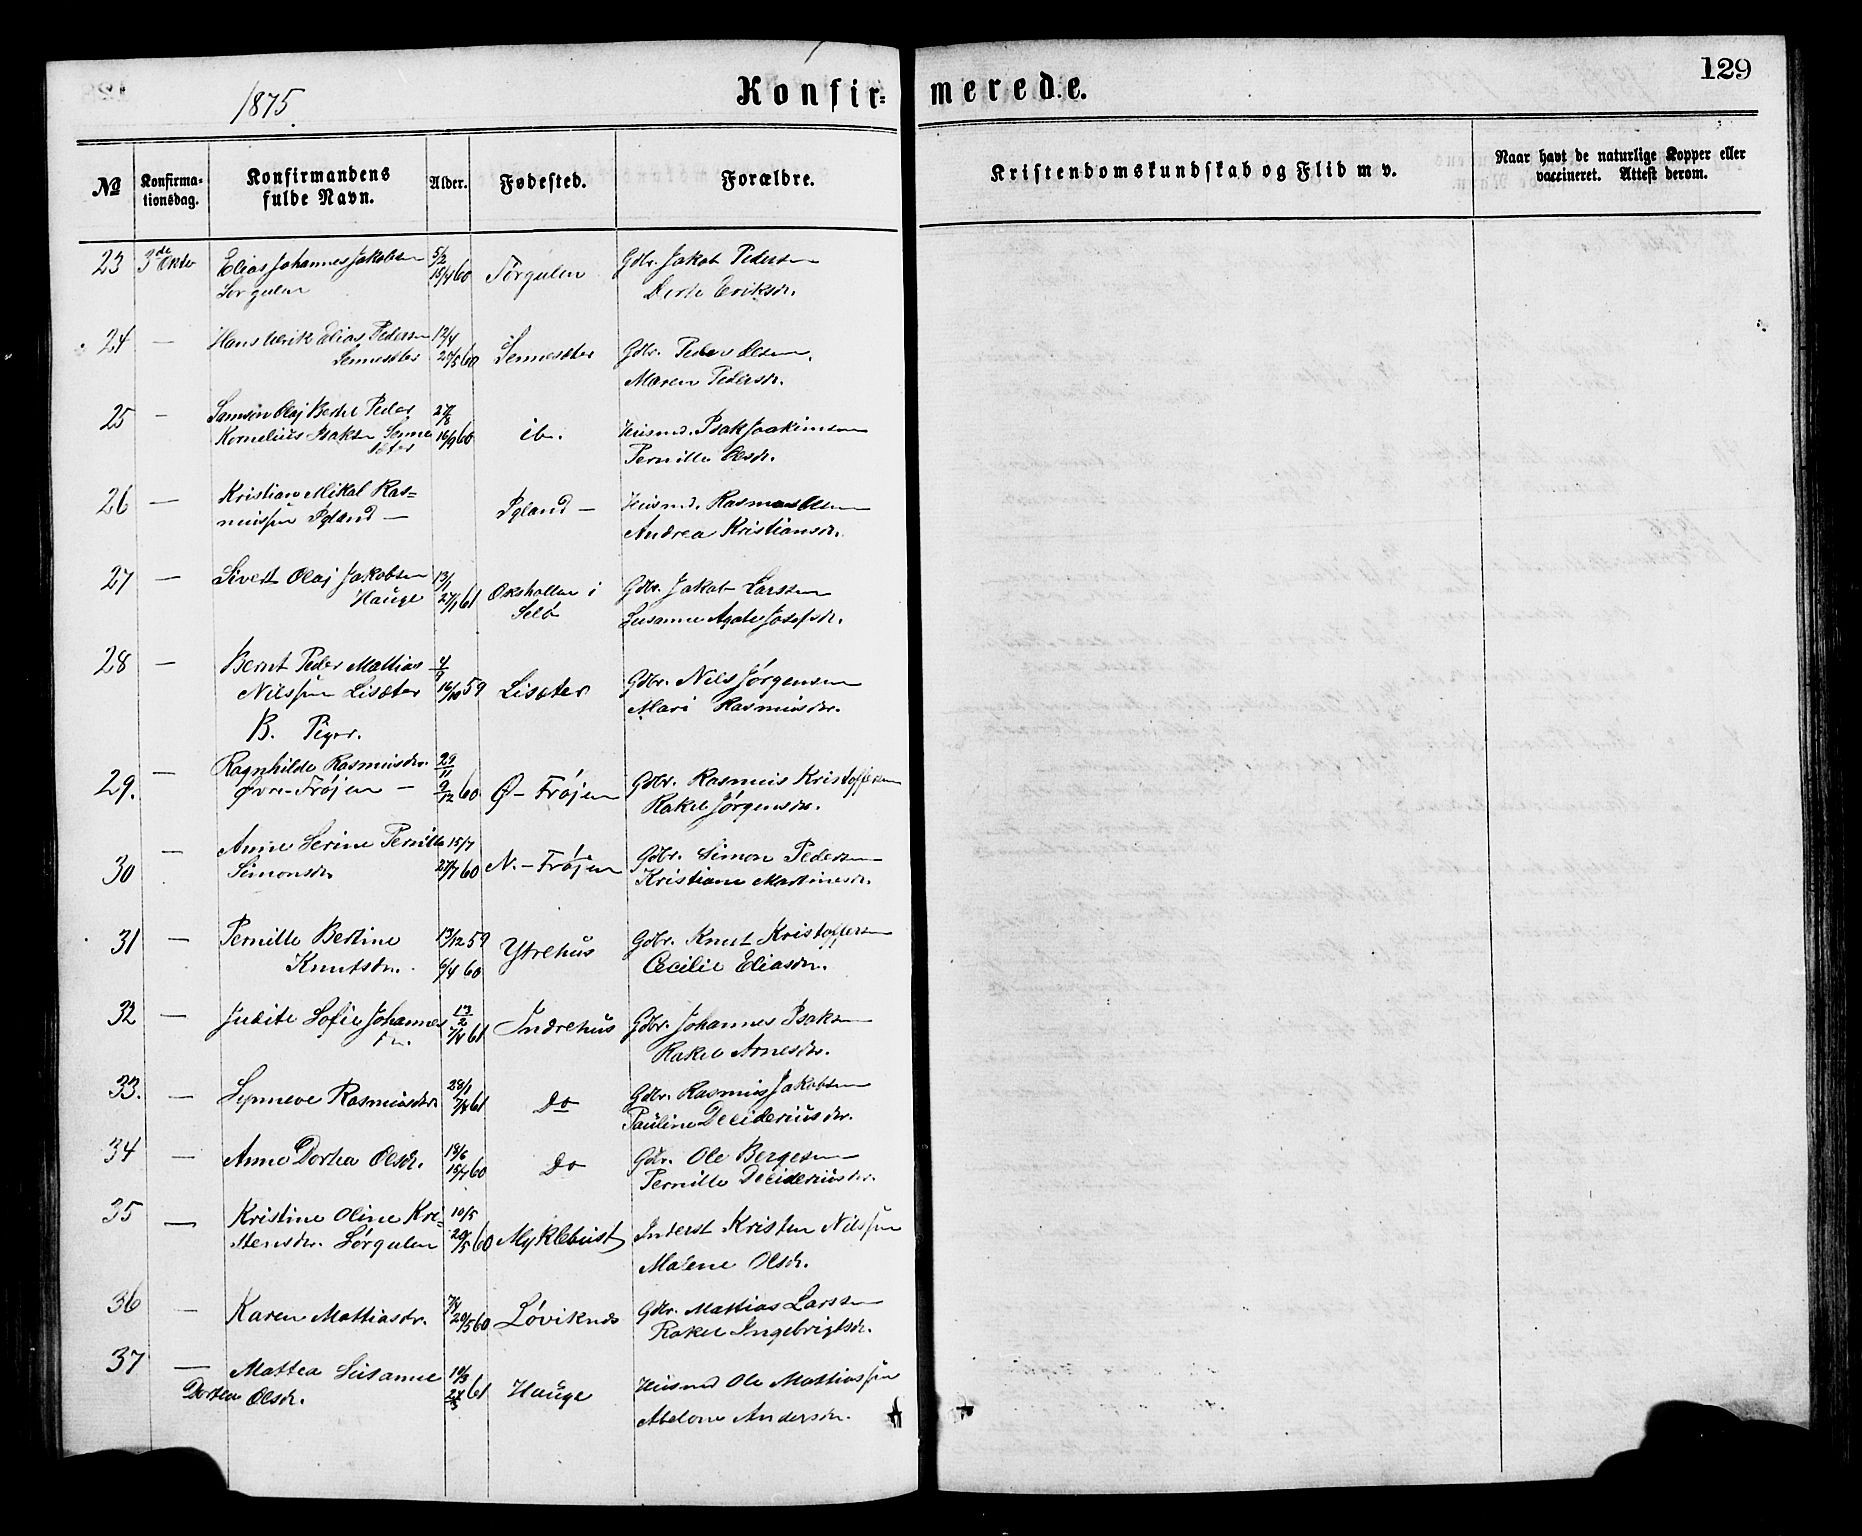 129
1875.
Konfir=merede.
№ Konfirma-tionsdag. Konfirmandens fulde Navn. Alder. Fødested. Forældre. Kristendomskundskab og Flid m v. Naar havt de naturlige Kopper eller vaccineret. Attest derom.
23 3de Okter Elias Johannes Jakobsen 5/2 Gdbr. Jakob Pedersen
Sørgulen 15/4 60 Sørgulen Eriksdr.
24 — Hans Henrik Elias Pedersen 12/4
Sennesæter 28/5 60 Sennesæter Gdbr. Peder Olsen.
Maren Pedersdr.
25 — Samson Olaj Bertel Peder 27/8
Kornelius Isaksen Senne 16/9 60 ib. Husmd. Isak Joakimsen
sæter Pernille Olsdr.
26 — Kristian Mikal Ras= Husmd. Rasmus Olsen
mussen Igland — Igland — Andrea Kristiansdr.
27 — Sivert Olaj Jakobsen 13/1 Gdbr. Jakob Larsen
Hauge 27/1 61 Oxhollen i
Selø Susanne Agate Josefsdr.
28 — Bernt Peder Mattias 4/9
Nilssen Lisæter 16/10 59 Lisæter Gdbr. Nils Jørgensen
Mari Rasmusdr.
B. Piger.
29. — Ragnhilde Rasmusdr. 29/11
Øvre-Frøjen — 9/12 60 Ø-Frøjen Gdbr. Rasmus Kristoffersen
Rakel Jørgensdr.
30 — Anne Serine Pernille 15/7 Gdbr. Simon Pedersen
Simonsdr. 27/7 60 N.-Frøjen Kristiane Martinusdr.
31 — Pernille Bertine 13/12 59 Gdbr. Knut Kristoffersen
Knutsdr. 6/4 60 Ytrehus Cecilie Eliasdr.
32 — Judite Sofie Johannes 13/2 Gdbr. Johannes Isaksen
dr. 7/4 61 Indrehus Rakel Arnesdr.
33. — Synneve Rasmusdr. 28/1 Gdbr. Rasmus Jakobsen
7/4 61 Do Pauline Decideriusdr.
34 — Anne Dortea Olsdr. 19/6 Gdbr. Ole Bergesen
15/7 60 Do Pernille Decideriusdr.
35 — Kristine Oline Kri- 10/5
stensdr. Sørgulen 20/5 60 Myklebust Inderst Kristen Nilssen
Malene Olsdr.
36 — Karen Mattiasdr. 20/5 60 Løviknes Gdbr. Mattias Larsen
Rakel Ingebrigtsdr.
37 — Mattea Susanne 10/3
Dortea Olsdr. 24/3 61 Hauge Husmd Ole Mattiassen
Abelone Andersdr.